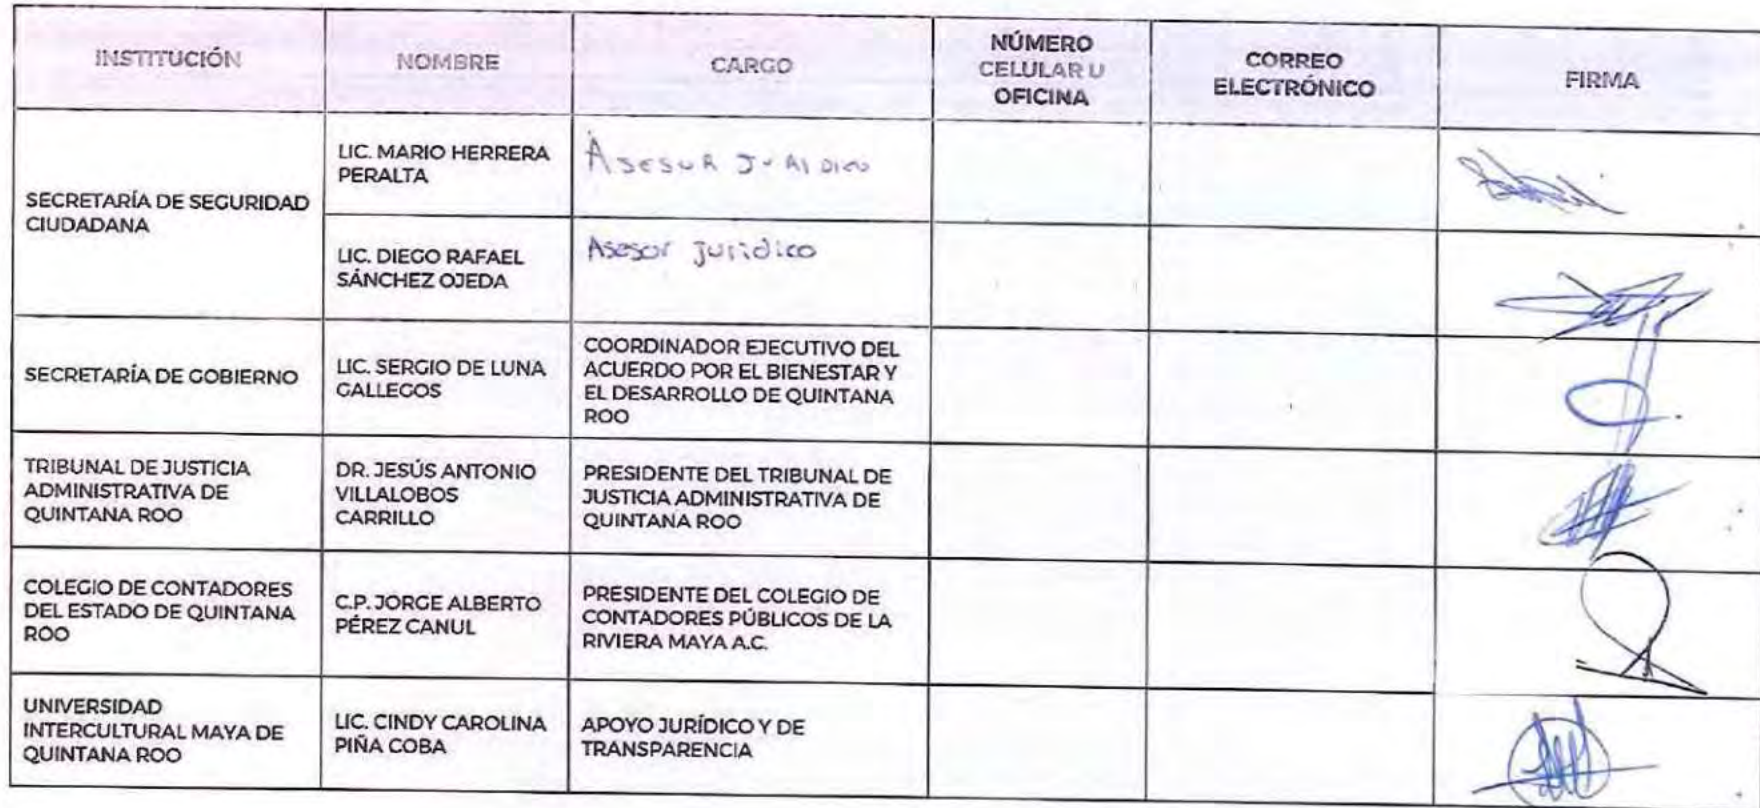 INSTITUCIÓN
NOMBRE
CARGO
NÚMERO
CELULAR U
OFICINA
CORREO
ELECTRÓNICO
FIRMA
SECRETARÍA DE SEGURIDAD
CIUDADANA
LIC. MARIO HERRERA
PERALTA
ASESOR JURIDICO
LIC. DIEGO RAFAEL
SÁNCHEZ OJEDA
Asesor jurídico
SECRETARÍA DE GOBIERNO
LIC. SERGIO DE LUNA
GALLEGOS
COORDINADOR EJECUTIVO DEL
ACUERDO POR EL BIENESTAR Y
EL DESARROLLO DE QUINTANA
ROO
TRIBUNAL DE JUSTICIA
ADMINISTRATIVA DE
QUINTANA ROO
DR. JESÚS ANTONIO
VILLALOBOS
CARRILLO
PRESIDENTE DEL TRIBUNAL DE
JUSTICIA ADMINISTRATIVA DE
QUINTANA ROO
COLEGIO DE CONTADORES
DEL ESTADO DE QUINTANA
ROO
C.P. JORGE ALBERTO
PÉREZ CANUL
PRESIDENTE DEL COLEGIO DE
CONTADORES PÚBLICOS DE LA
RIVIERA MAYA A.C.
UNIVERSIDAD
INTERCULTURAL MAYA DE
QUINTANA ROO
LIC. CINDY CAROLINA
PIÑA COBA
APOYO JURÍDICO Y DE
TRANSPARENCIA